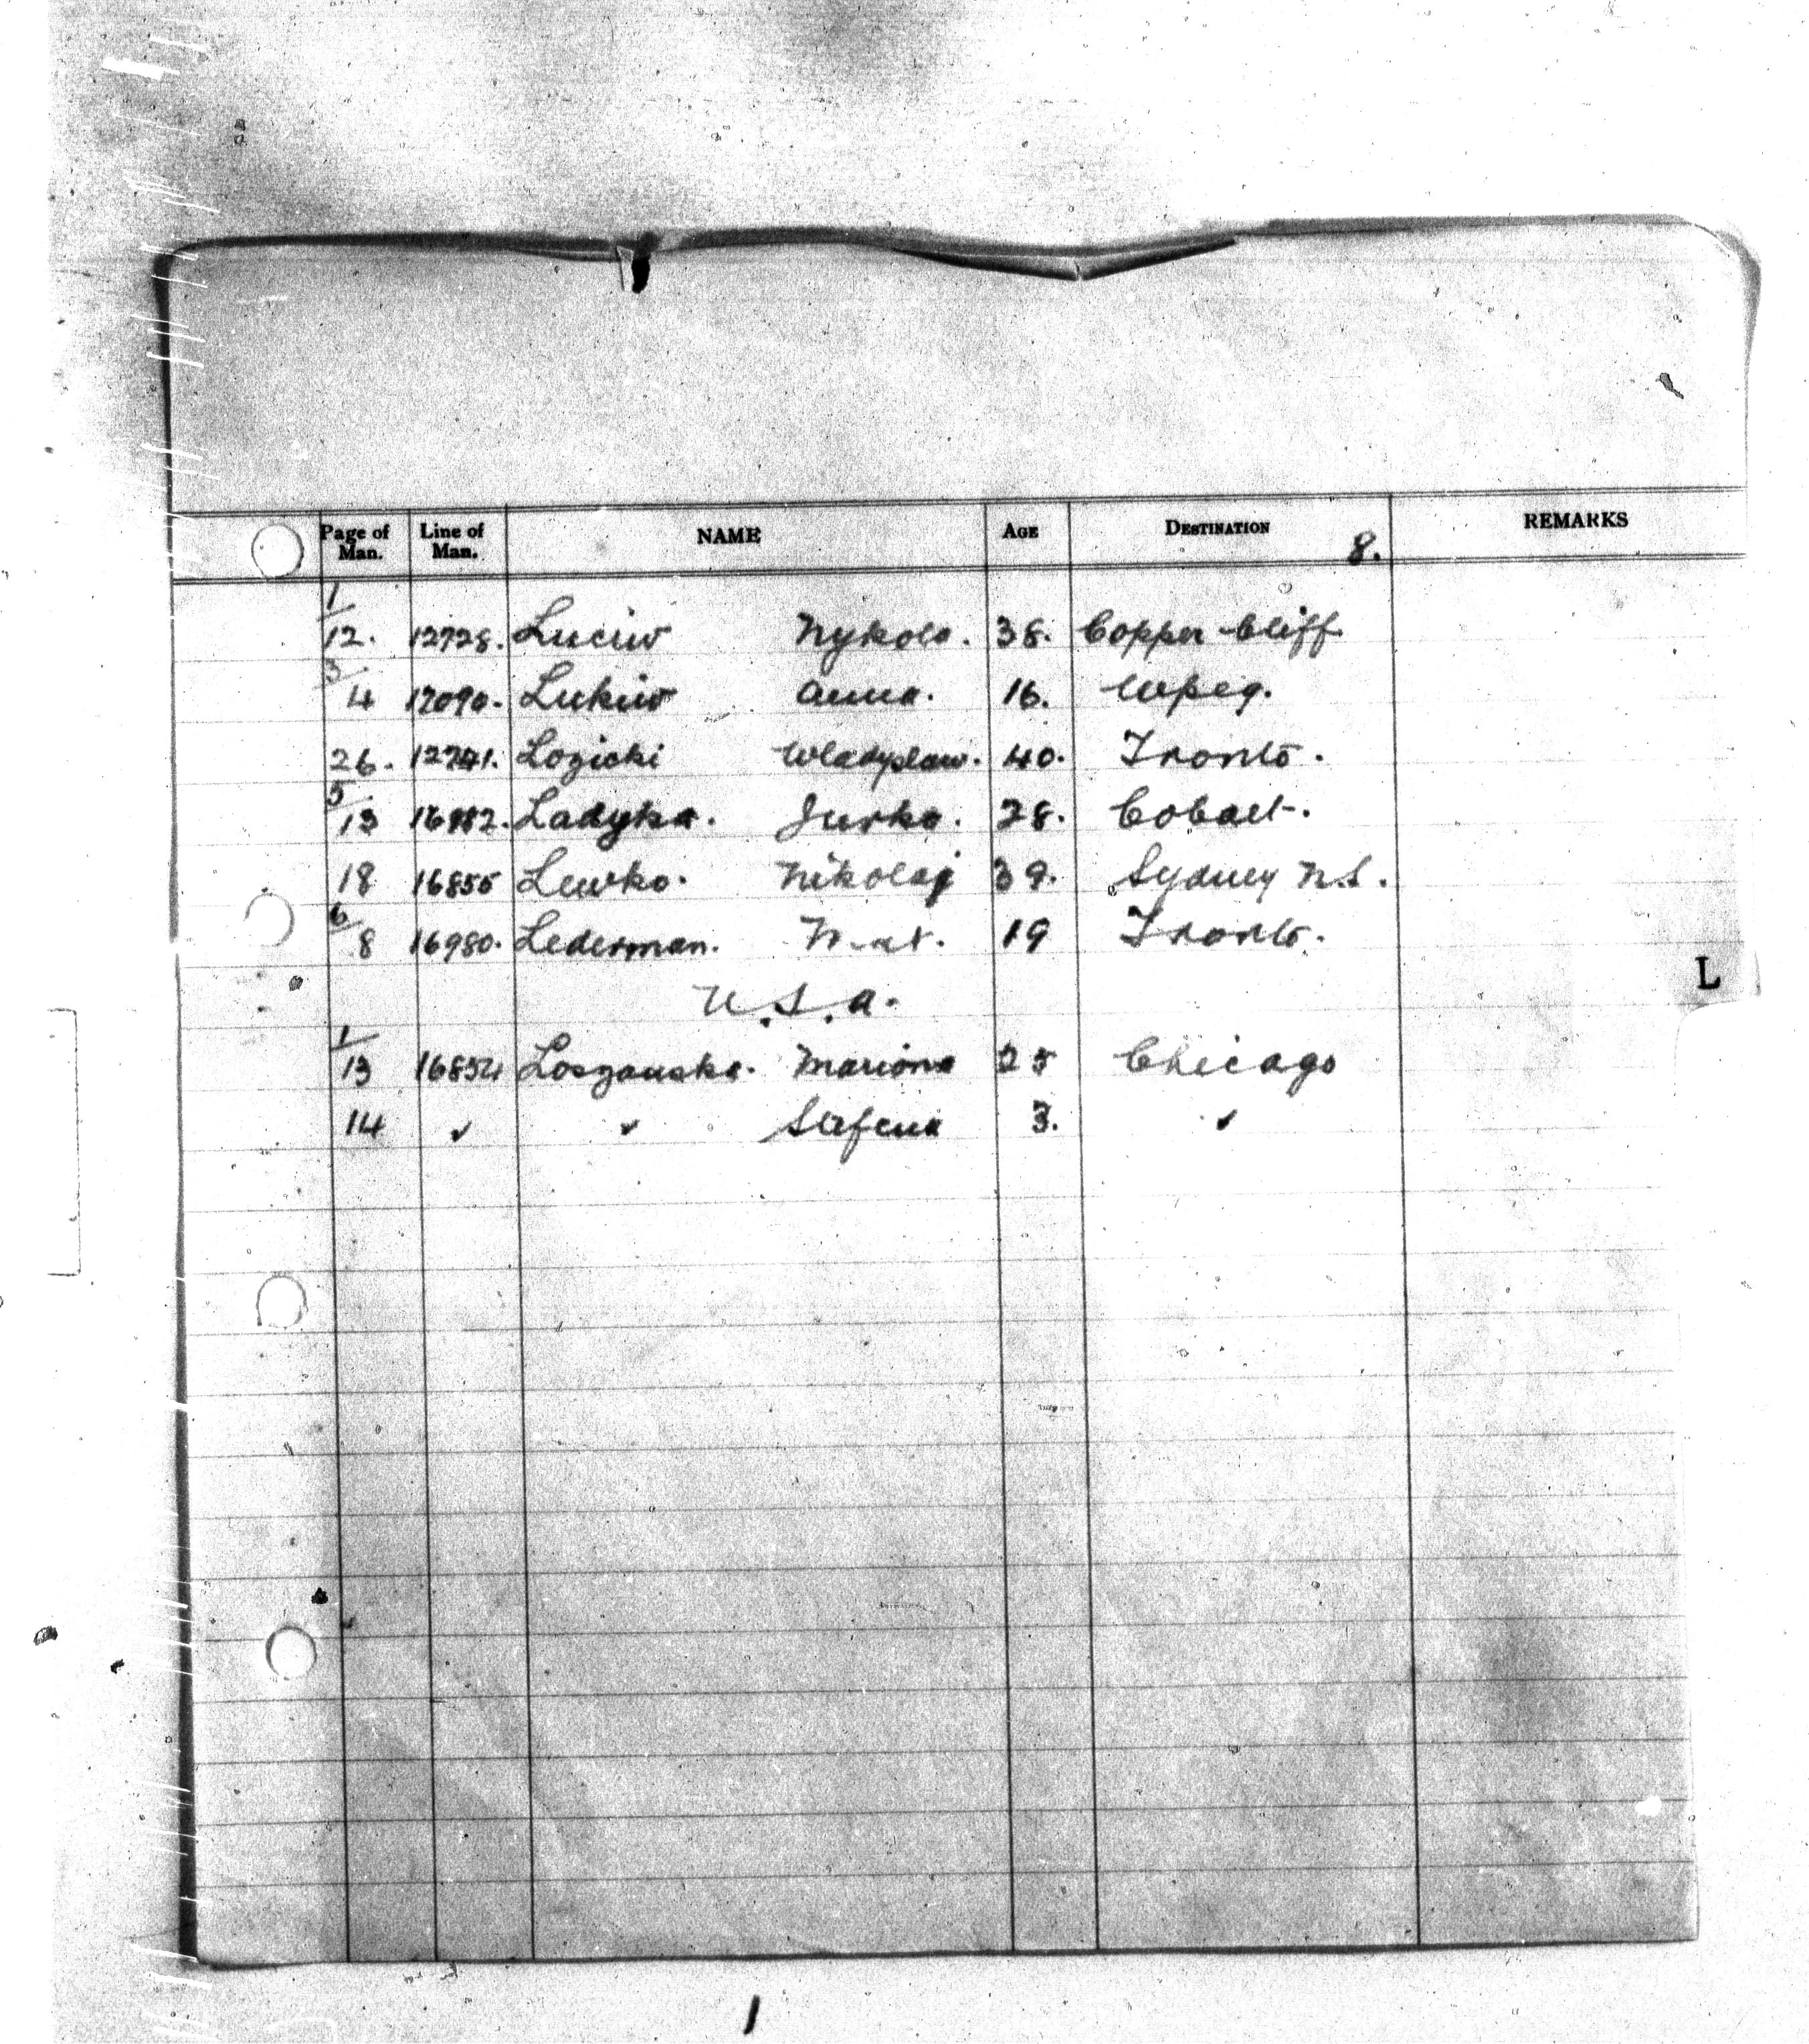 Page of Man. Line of Man. NAME AGE DESTINATION REMARKS
8.
1/
12. 12728. Luciw Nykola. 38. Copper Cliff.
3/
4 12090. Lukiw Anna. 16. Wpeg.
26. 12741. Lozicki Wladyslaw. 40. Tronto.
5/
13 16982. Ladyka. Jurko. 28. Cobalt.
18 16855 Lewko. Nikolaj 39. Sydney N.S.
6/
8 16980. Lederman. 19 Tronto.
L
U.S.A.
1/
13 16854 Loszanska. Mariona 25 Chicago
14 " " Stefcia 3. "
1